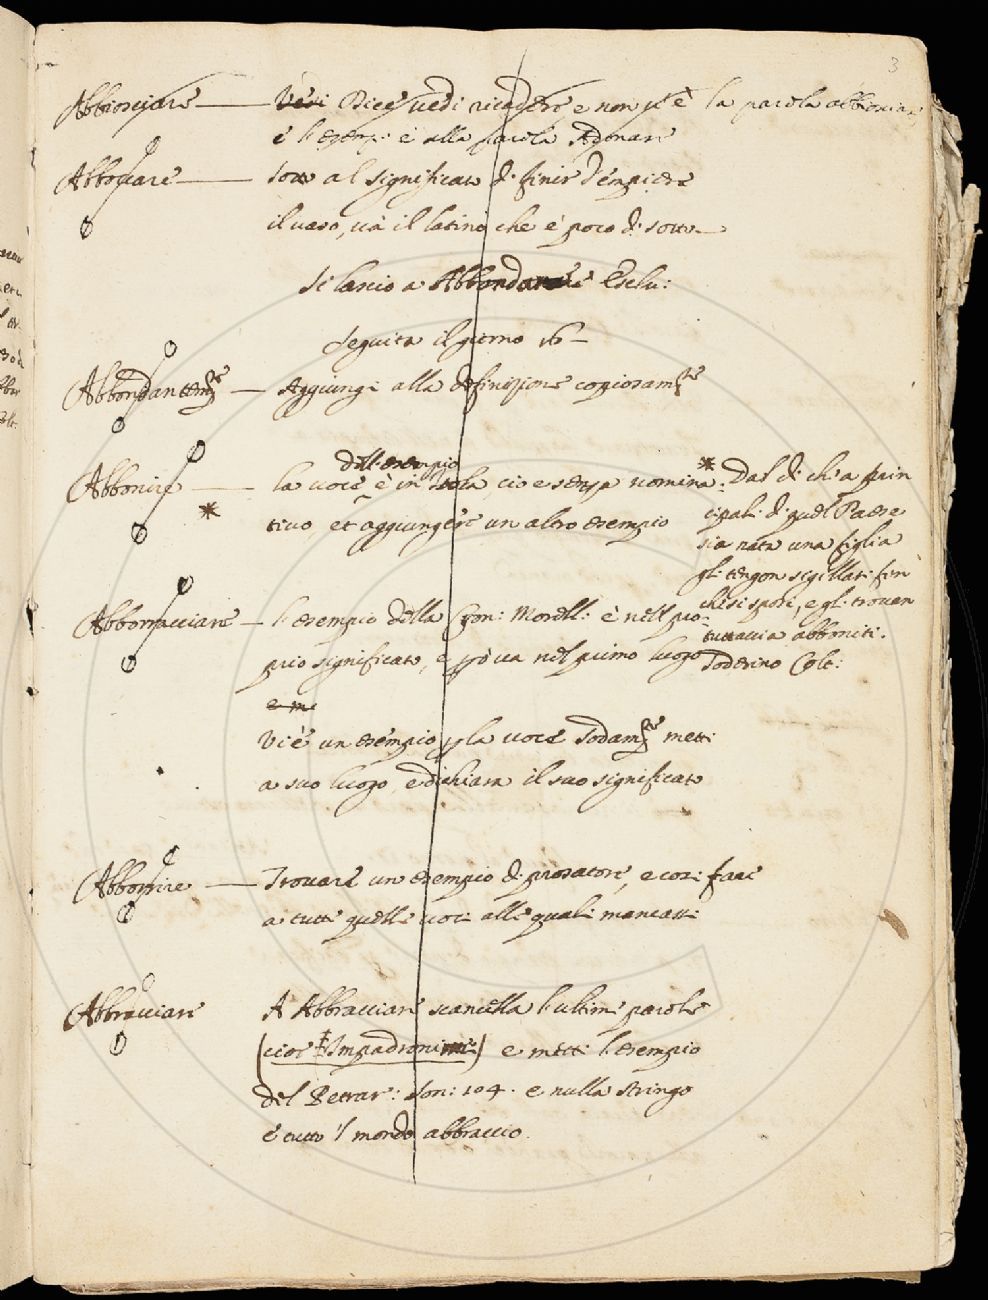 3
Abbiosciare — Vedi Dice vedi ricadere, e non v'è la parola abbiosciar
e l'esemp: è alla parola Adonare
Abboccare — sotto al significato di finir d'empiere
il vaso, va il latino che è poco di sotto —
Si lasciò a Abbondare Esclu:
Seguita il giorno 16 —
Abbondantem.te — Aggiungi alla definizione copiosam.te
dell'esempio
Abbonire — la voce è in sola, cioè senza nomina:
tivo, et aggiungere un altro esempio
* Dal dì ch'a prin
cipali di quel Paese
sia nata una figlia
gli tengon sigillati fin
ch'ei si sposi, e gli trovan
tuttavia abboniti.
Soderino Colt:
Abborracciare — l'esempio della Cron: Morell: è nel pro:
prio significato, e va nel primo luogo
e m
Vi è un esempio la voce sodam.te metti
a suo luogo, e dichiara il suo significato
Abborrire — Trovare un esempio di prosatore, e così fare
a tutte quelle voci alle quali mancassi
Abbracciare A Abbracciare scancella l'ultime parole
(cioè Impadronirsi) e metti l'esempio
del Petrar: Son: 104. e nulla stringo
e tutto 'l mondo abbraccio.